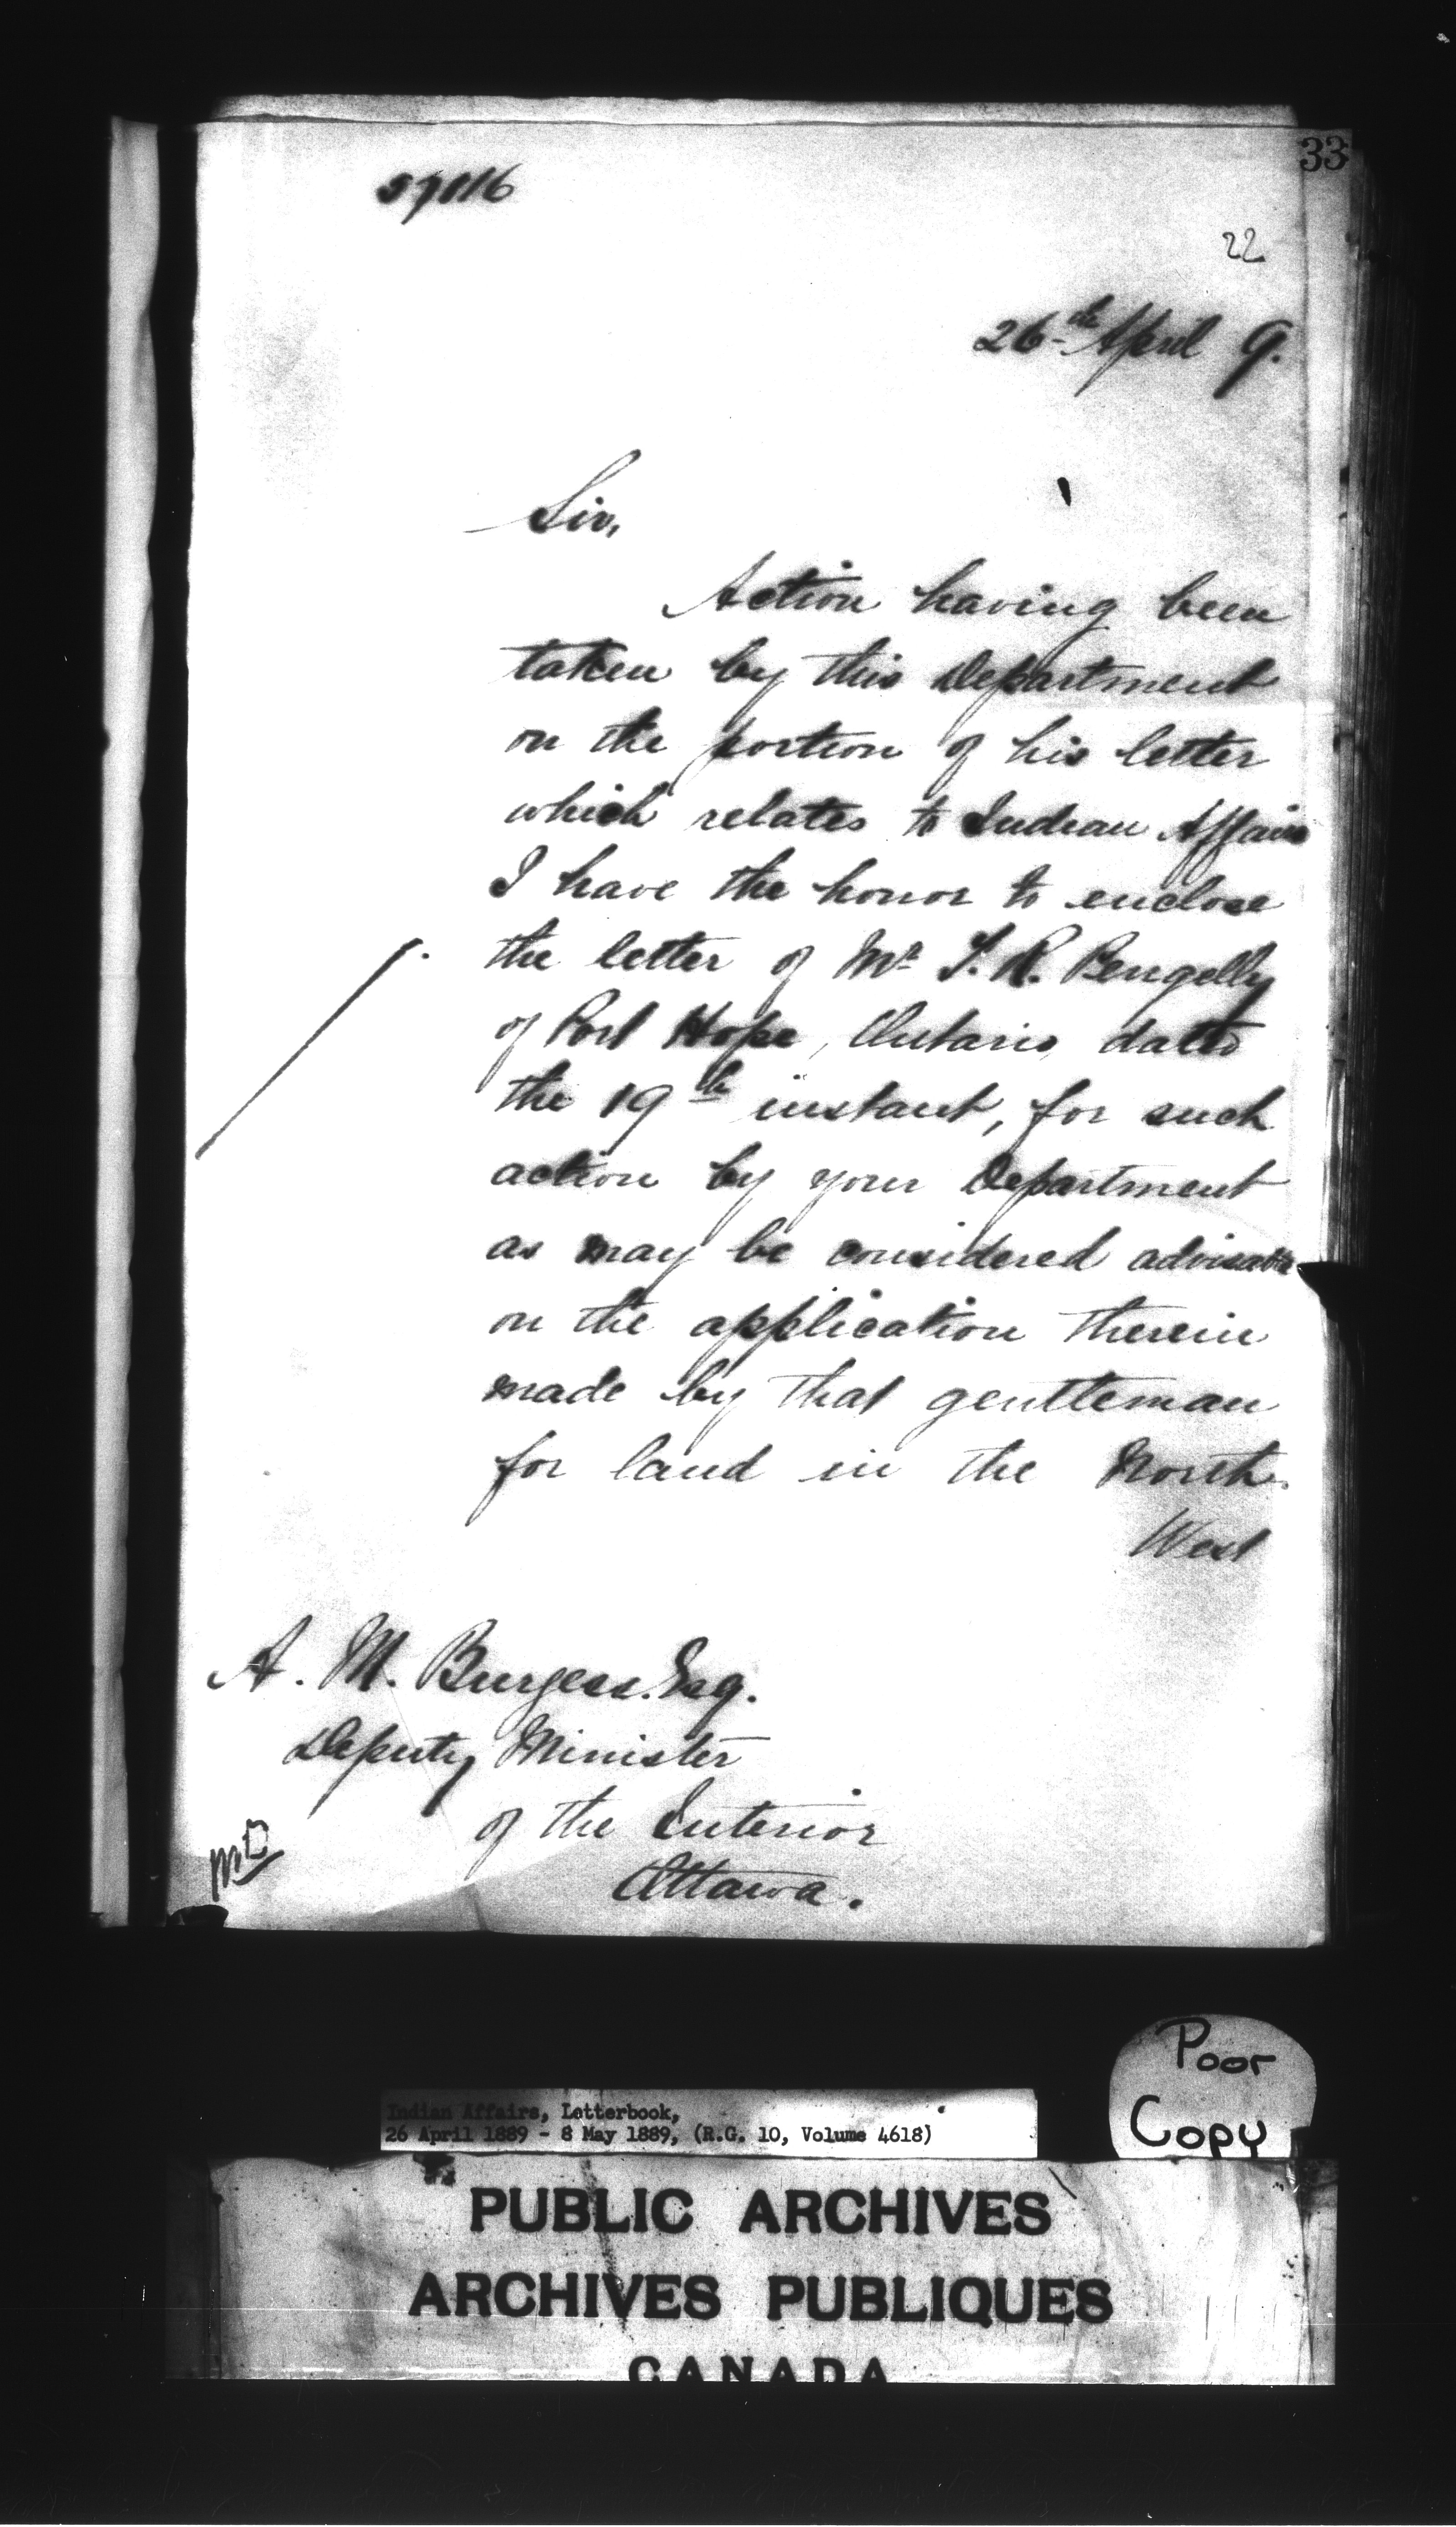 33
57016
22
26th April 9.
Sir,
Action having been
taken by this Department
on the portion of his letter
which relates to Indian Affairs
I have the honor to enclose
the letter of Mr. T. R. Bengelly
of Port Hope, Ontario, dated
the 19th instant, for such
action by your Department
as may be considered advisable
on the application therein
made by that gentleman
for land in the North
West
A. M. Burgess. Esq.
Deputy Minister
of the Interior
Ottawa.
Poor
Copy
Indian Affairs, Letterbook,
26 April 1889 - 8 May 1889, (R.G. 10, Volume 4618)
PUBLIC ARCHIVES
ARCHIVES PUBLIQUES
CANADA